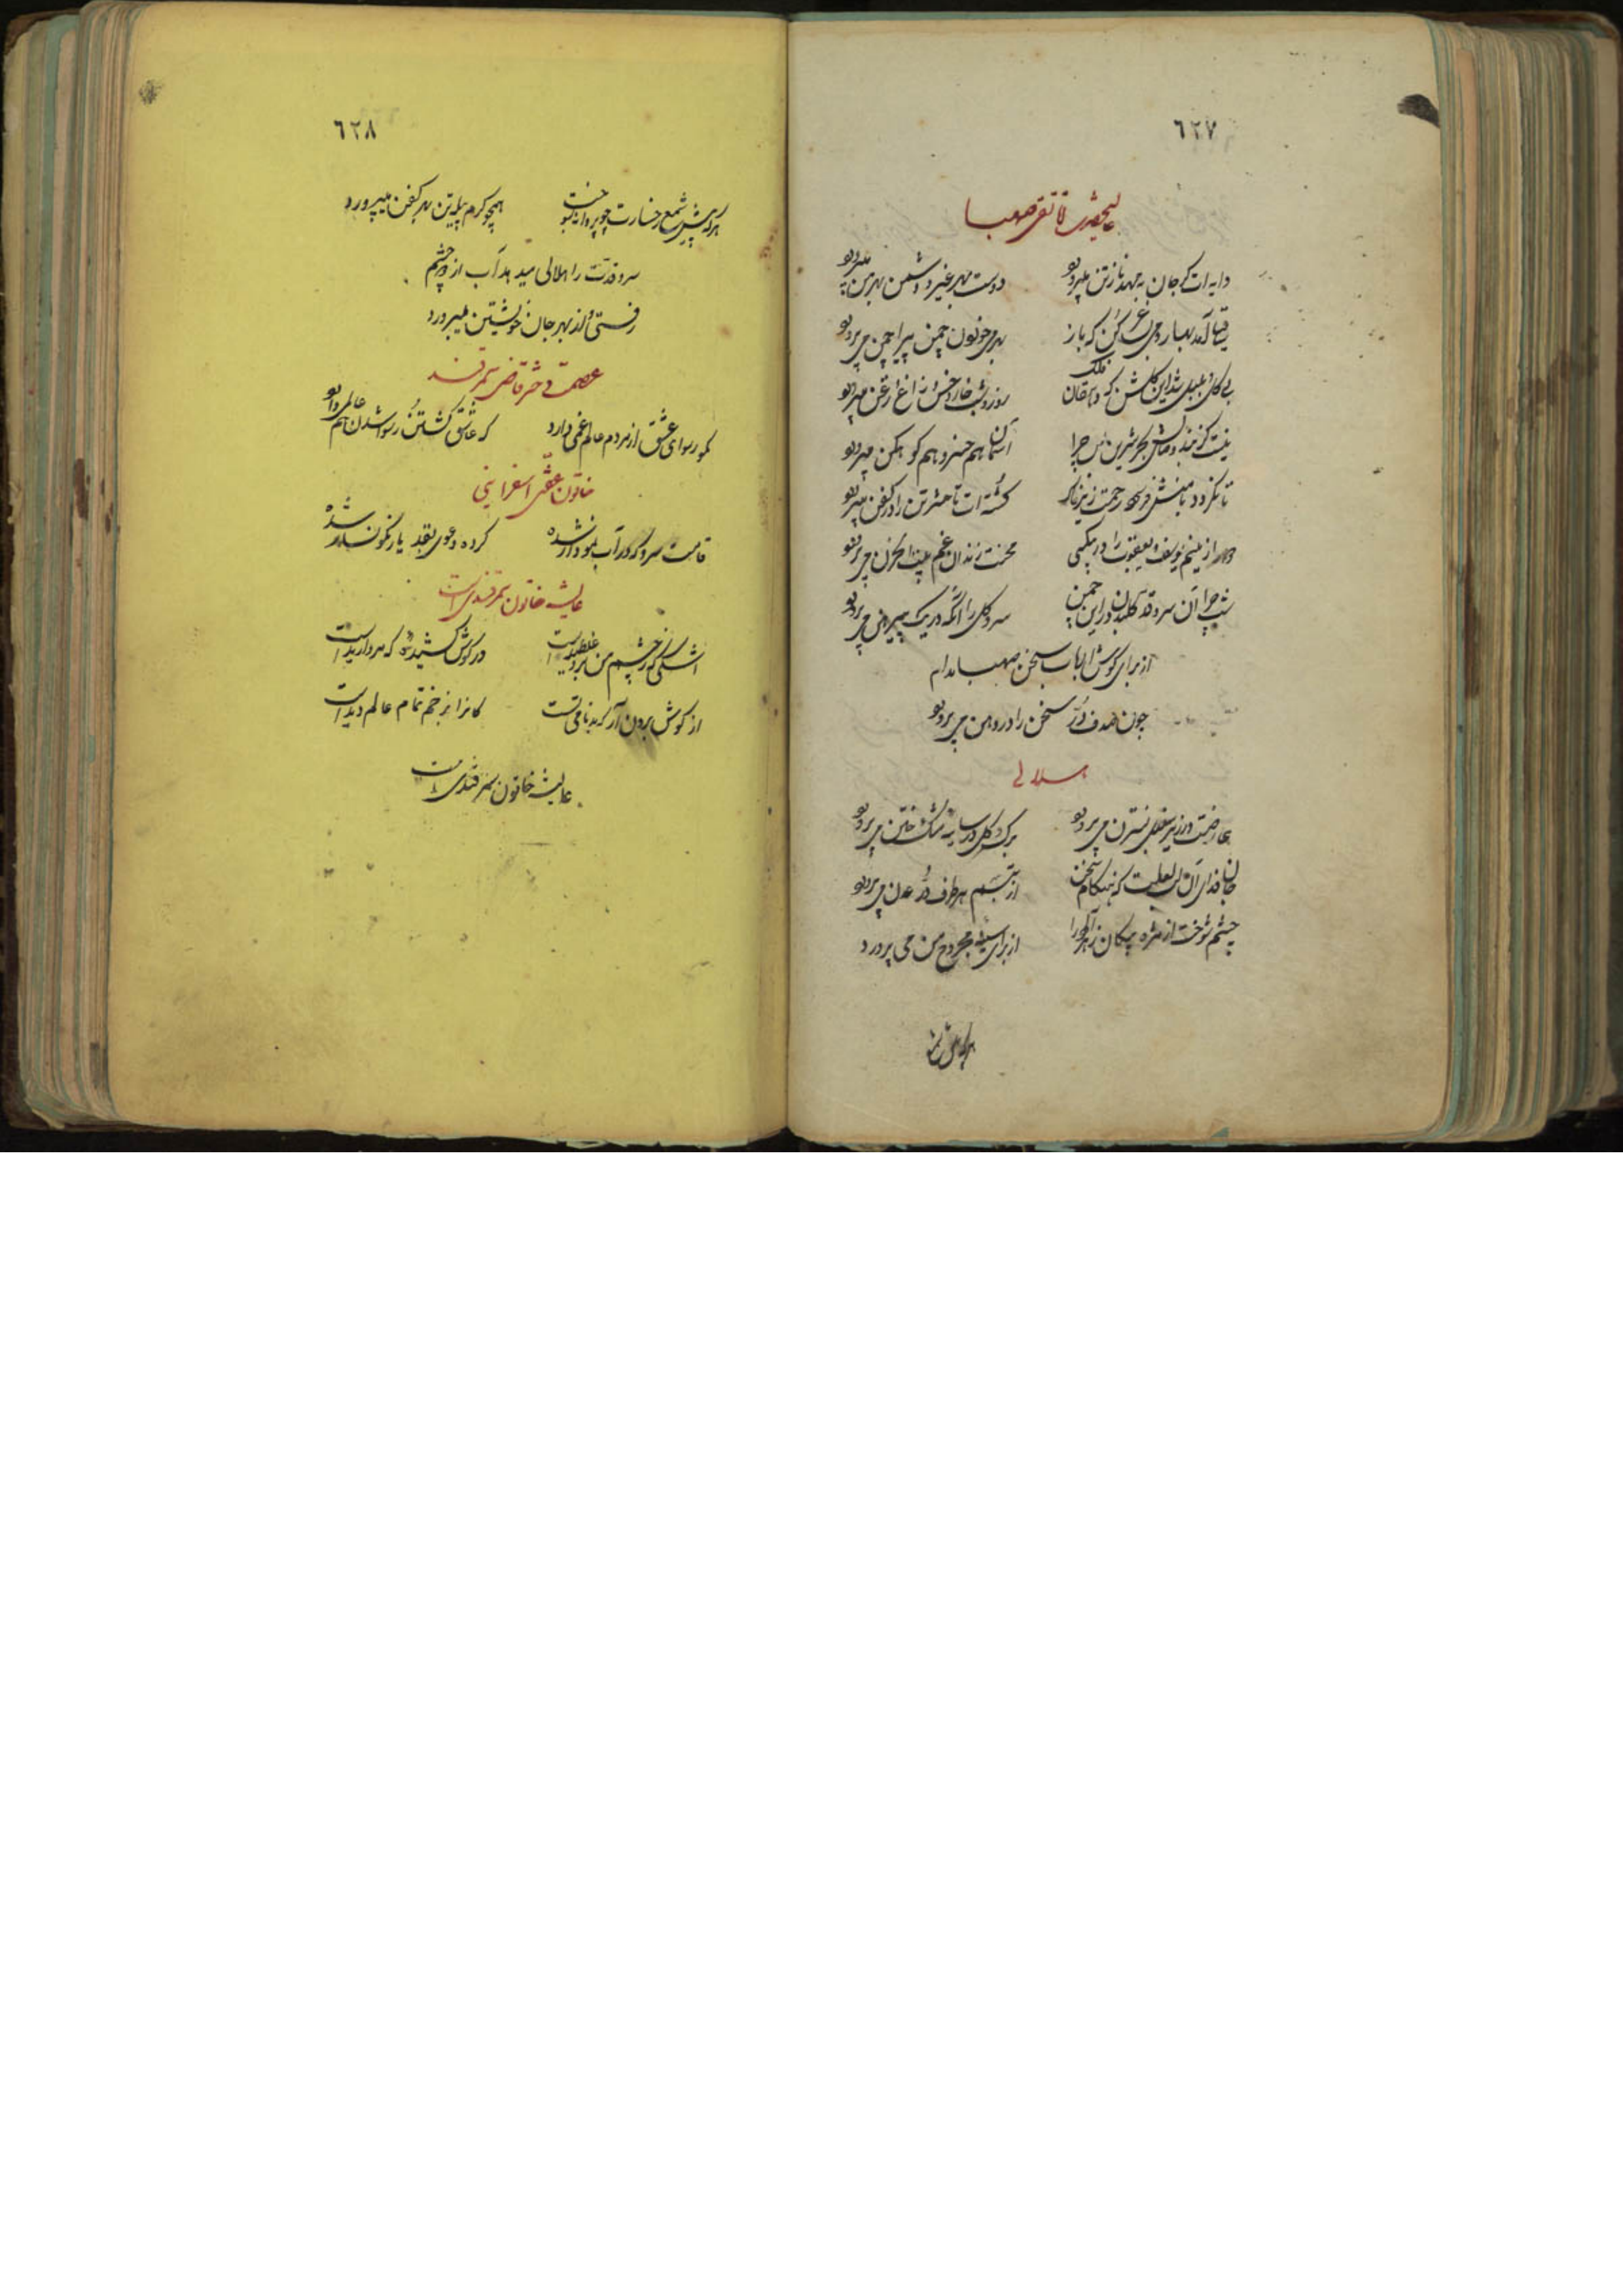 ٦٢٧
دایه ات کو جان به مهد ناز تن میپرورد
دوست بهر غیر و دشمن بهر من میپرورد
ساقیا آمد بهار و می بساغر کن که باز
بهر می خوردن چمن پیرا چمن می پرورد
بی گل و بلبل شد این گلشن که دهقان فلک
روز و شب خار و خس و زاغ و زغن میپرورد
آسمان هم خسرو هم کوهکن میپرورد
کشته ات تا حشر تن را در کفن میپرورد
محنت زندان غم بیت الحزن می پرورد
آن سرو قد گلبدن در این چمن
سرو گل را آنکه در یک پیرهن می پرورد
از برای گوش ارباب سخن صهبا مدام
چون صدف در سخن را در دهن می پرورد
هلالی
عارضت در زیر سنبل نسترن می پرورد
برگ گل در سایه مشک ختن می پرورد
جان فدای آن لب لعلت که هنگام سخن
از تبسم هر طرف در عدن می پرورد
چشم شوخت از مژه پیکان زهرآلود را
از برای سینه مجروح من می پرورد
هر که پیش شمع
٦٢٨
هر که پیش شمع رخسارت چو پروانه نسوخت
همچو کرم پیله تن بهر کفن میپرورد
سرو قدت را هلالی میدهد آب از دو چشم
راستی را از بهر جان خویشتن میپرورد
عصمتی دختر قاضی سمرقند
رسوای عشق از مردم عالم غمی دارد
که عاشق گشتن و رسوا شدن هم عالمی دارد
خاتون عفتی اسفراینی
قامت سرو که در آب نمودار شده
کرده دعوی بقد یار نگونسار شده
عایشه خاتون سمرقندی است
اشکی که ز چشم من برون غلطیده است
در گوش کشیده که مروارید است
از گوش برون آر که بدنامی تست
کانرا بر خم تمام عالم دیده است
عایشه خاتون سمرقندی است